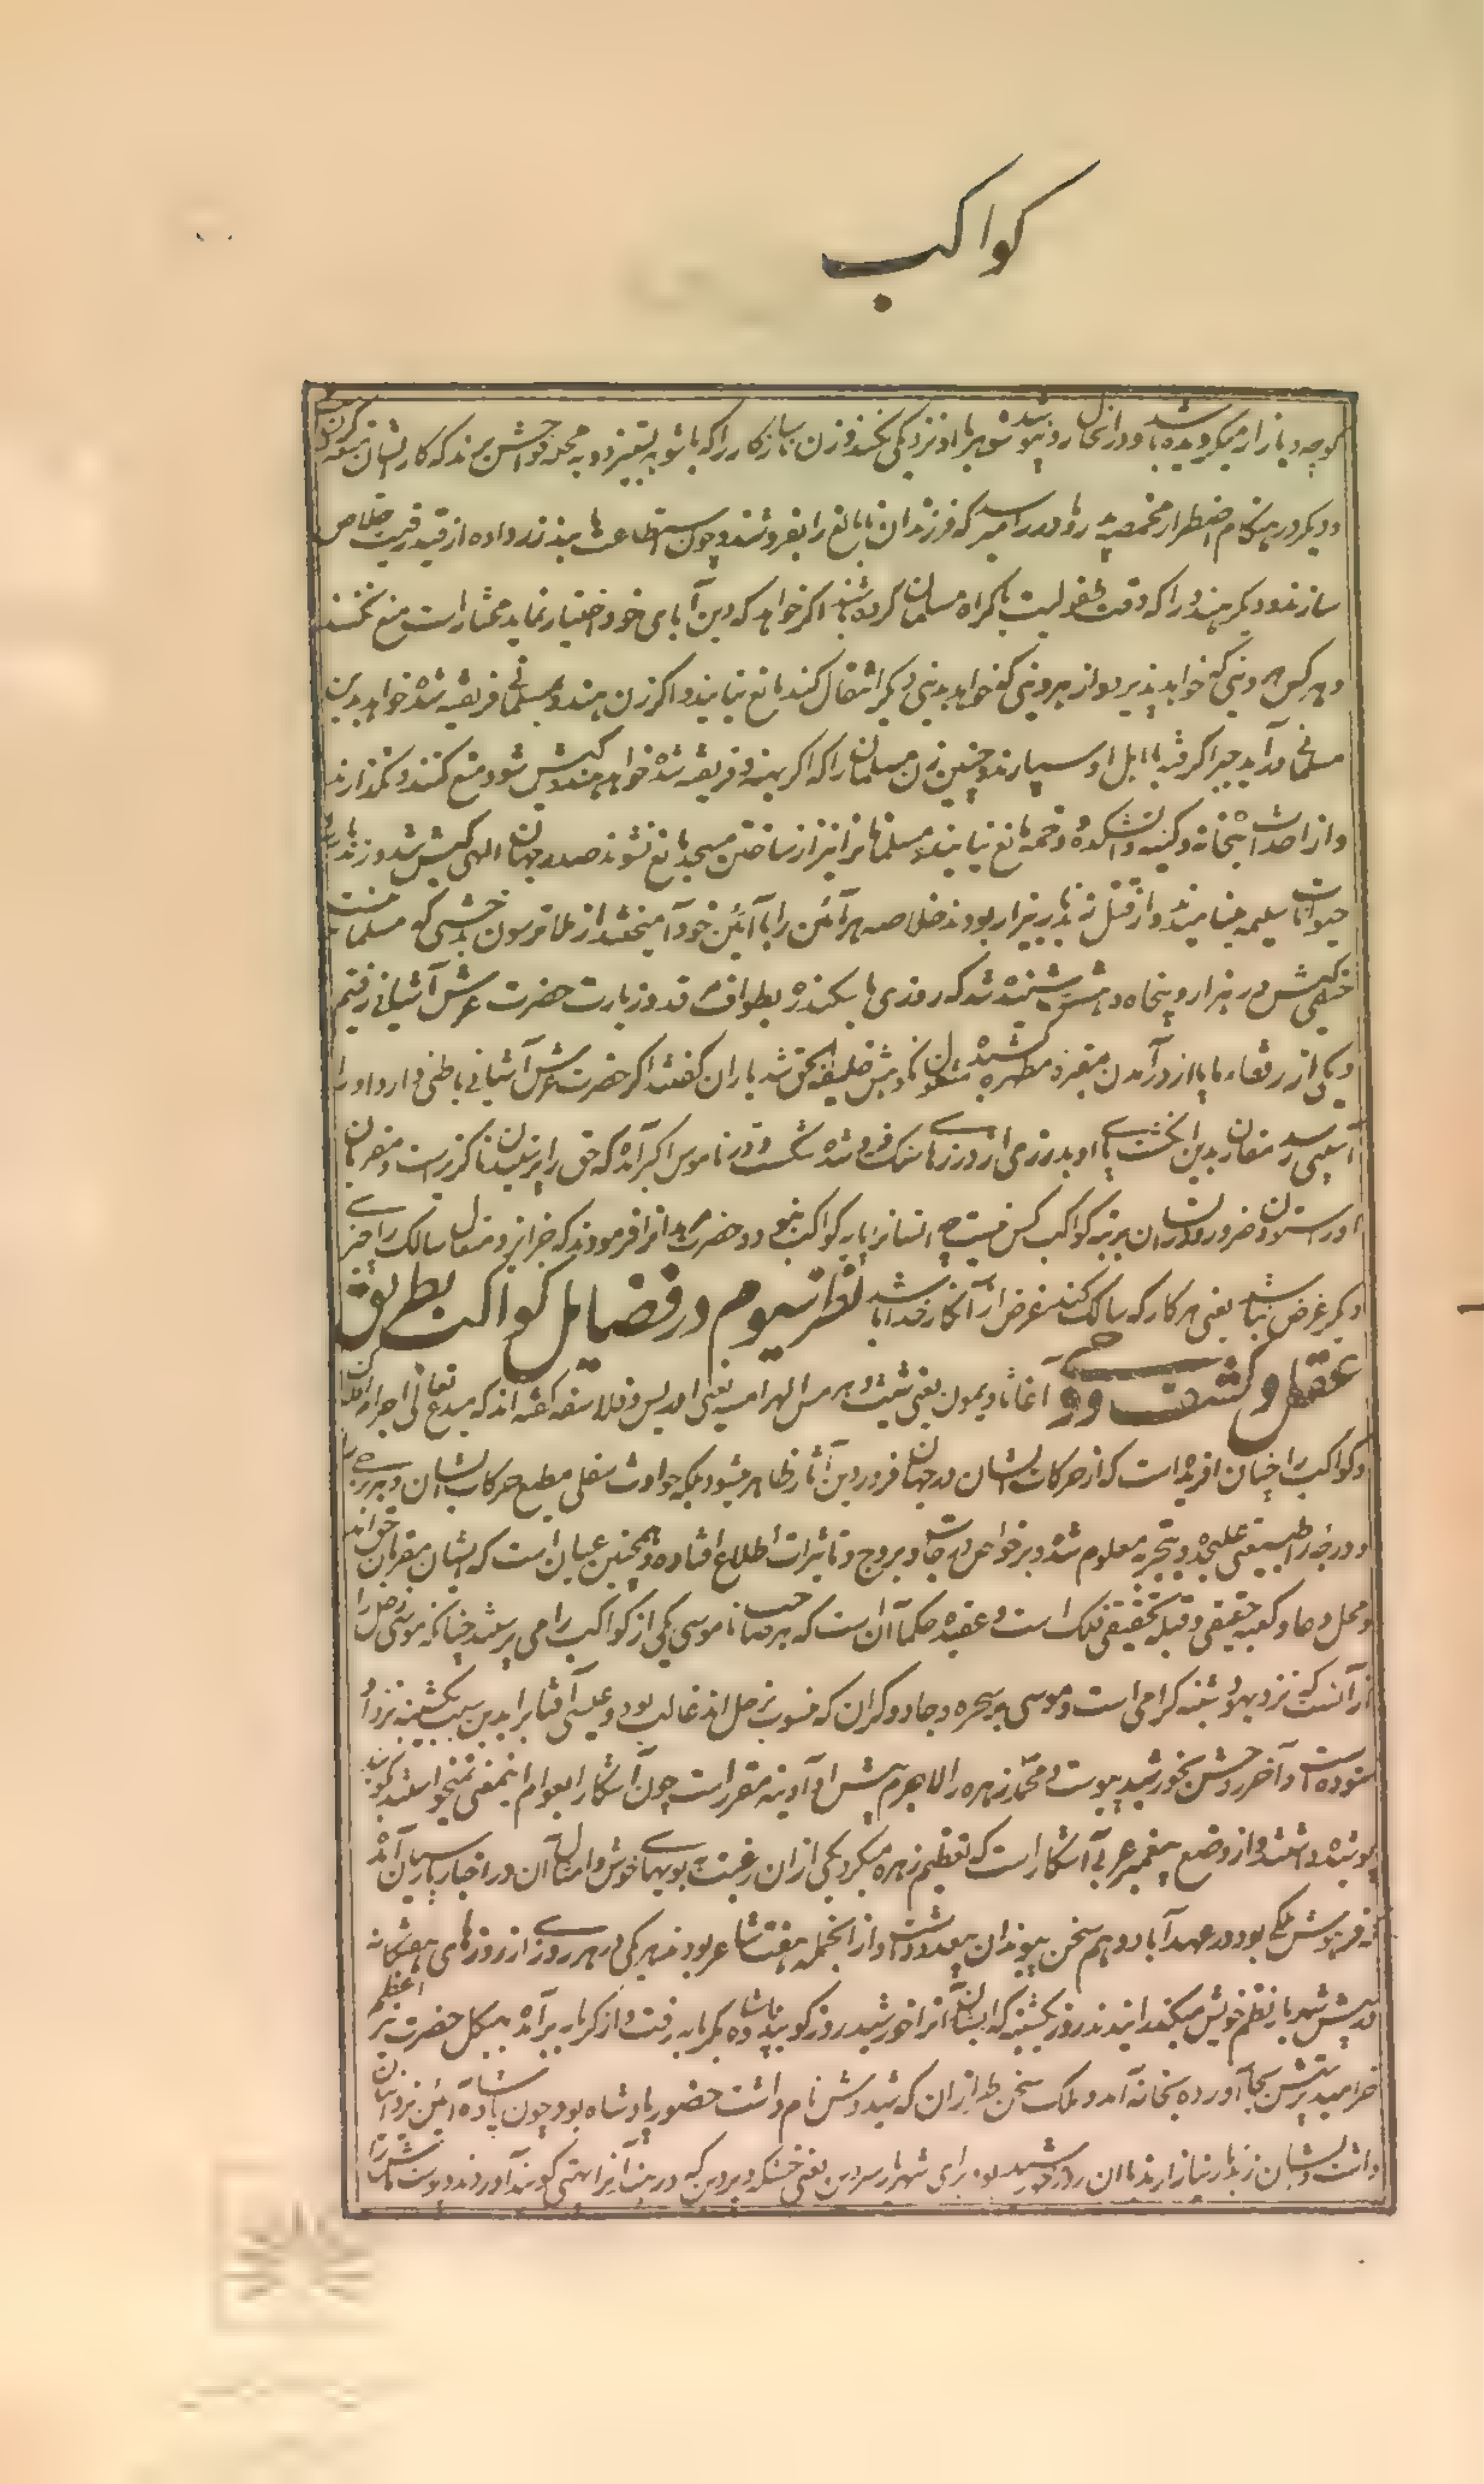 کواکب
کوچه و بازار میگردیده باشد و در انحال رو نپوشد شوهر با او نزدیکی نکند و زن ناسازکار را که با شوهر بستیزد به محله فواحش برند که کار ایشان
و دیگر در هنگام اضطرار مخمصه پدر و مادر را میرسد که فرزندان نابالغ را بفروشند و چون استطاعت یابند زر داده از قید رقیت خلاص
سازند و دیگر هندو را که وقت طفولیت باکراه مسلمان کرده باشند اگر خواهد که دین آبای خود اختیار نماید مختار است منع نکنند
و هر کس هر دینی که خواهد پذیرد و از هر دینی که خواهد بدینی دیگر انتقال کند مانع نیایند و اگر زن هندو بمسلمانی فریفته شده خواهد بدین
مسلمانی درآید جبراً گرفته با اهل او سپارند و چنین زن مسلمان را که اگر بهندو فریفته شده خواهد هندو کیش شود منع کنند و نگذارند
و از احداث بتخانه و کنیسه و آتشکده و دخمه مانع نیایند و مسلمانان را نیز از ساختن مسجد مانع نشوند صدر جهان الهی کیش شد
حیوانات سلیمه مینامیدند و از قتل زندبار بیزار بودند خلاصه هر آئین را با آئین خود آمیختند از ملا ترسون بدخشی که مسلمانست
حنفی کیش در هزار و پنجاه و هشت شنیده شد که روزی بسکندره بطواف مرقد و زیارت حضرت عرش آشیانی رفتیم
و یکی از رفقاء ما بالا از درآمدن مقبره مطهره مشغول نکوهش خلیفة الحق شد یاران گفتند اگر حضرت عرش آشیانی باطنی دارد او را
آسیبی رسد مقارن بدین انگشت پای او بدرزی از درزهای سنگ فرو شده شکست و در ناموس اکبر آمده که حق را پرستیدن ناگزیر است و مقربان
او را ستودن ضرور و انسان برتبه کواکب کس نیست چه انسان را پایه کواکب نبود و حضرت فرمودند که جز ایزد متعال سالک را چیز
دیگر غرض نباشد یعنی هر کار که سالک کند غرض از آنکار خدا باشد نظر سیوم در فضایل کواکب بطریق
عقل و کشف و وحی آغاثاذیمون یعنی شیث و هرمس الهرامسه یعنی ادریس و فلاسفه گفته اند که مبدع تعالی اجرام افلاک
و کواکب را چنان آفریده است که از حرکات ایشان در جهان فرودین آثار ظاهر میشود بلکه حوادث سفلی مطیع حرکات ایشان و هر برجی را
و درجه را طبیعتی علیحده و بتجربه معلوم شده و بر خواص درجات و بروج و تاثیرات اطلاع افتاده و همچنین عیان است که ایشان مقربان حق اند
و محل دعا و کعبه حقیقی و قبله تحقیقی فلک است و عقیده حکما آن است که هر صاحب ناموسی یکی از کواکب را می پرستید چنانکه موسی زحل را
از آنست که نزد یهود شنبه گرامی است و موسی بر سحره و جادوگران که منسوب بزحل اند غالب بود و عیسی آفتاب را بدین سبب یکشنبه نزد او
ستوده است و آخر روحش بخورشید پیوست و محمد زهره را لاجرم پیش او آدینه مقرر است چون آشکار ابعوام اینمعنی نمیخواستند گویند
پوشیده داشتند و از وضع پیغمبر عربی آشکار است که تعظیم زهره میکرد یکی از آن رغبت ببویهای خوش و امثال آن در اخبار پارسیان آمده
که فرهوش ملکی بود در عهد آباد و هم سخن پیوندان بیعد داشت و از آنجمله هفت شاعر بودند هر یکی در هر روز از روزهای هفتگانه
در پیش شهریار نظم خویش میگذرانیدند روز یکشنبه که ایشان آنرا خورشید روز گویند پادشاه بگرمابه رفت و از گرمابه برآمده بهیکل حضرت نیر اعظم
خرامید پرستش بجا آورده بخانه آمد و ملک سخن طرازان که شیدوش نام داشت حضور پادشاه بود چون پادشاه آئین یزدانیان
داشت و ایشان زندبار نیازارند با آن روز خورشید بود برای شهریار سردین یعنی خشکه و بروین که در هند آنرا گویند آوردند